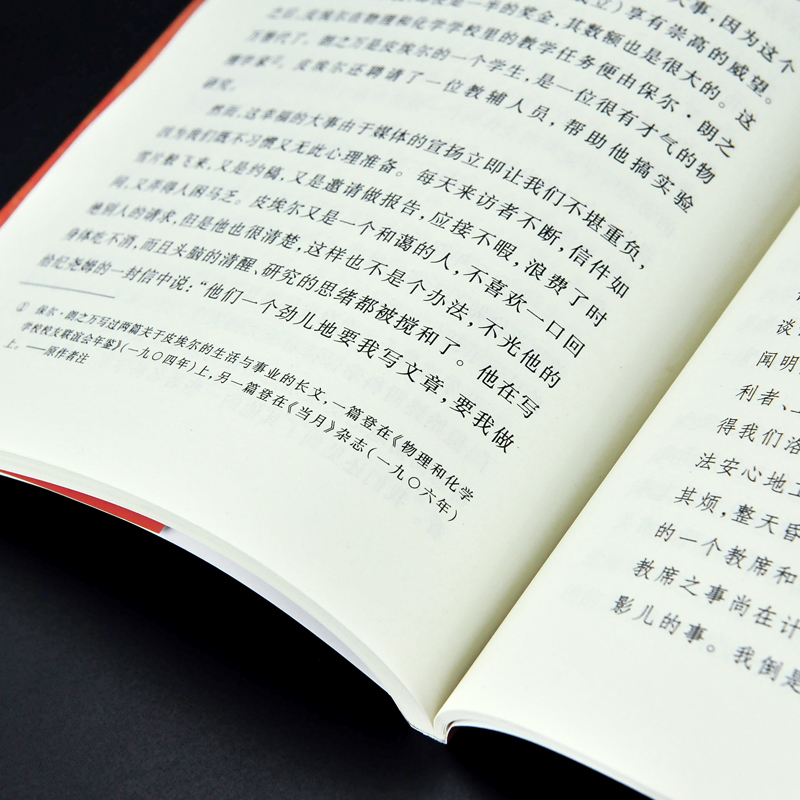 大事，因为这个
立）享有崇高的威望。
是一半的奖金，其数额也是很大的。这
之后，皮埃尔在物理和化学学校里的教学任务便由保尔·朗之
万替代了。朗之万是皮埃尔的一个学生，是一位很有才气的物
理学家①。皮埃尔还聘请了一位教辅人员，帮助他搞实验
研究。
然而，这幸福的大事由于媒体的宣扬立即让我们不堪重负，
因为我们既不习惯又无此心理准备。每天来访者不断，信件如
雪片般飞来，又是约稿，又是邀请做报告，应接不暇，浪费了时
间，又弄得人困马乏。皮埃尔又是一个和蔼的人，不喜欢一口回
绝别人的请求，但是他也很清楚，这样也不是个办法，不光他的
身体吃不消，而且头脑的清醒、研究的思绪都被搅和了。他在写
给纪尧姆的一封信中说：“他们一个劲儿地要我写文章，要我做
① 保尔·朗之万写过两篇关于皮埃尔的生活与事业的长文，一篇登在《物理和化学
学校校友联谊会年鉴》（一九〇四年）上，另一篇登在《当月》杂志（一九〇六年）
上。——原作者注
谈
闻明
利者、
得我们洛
法安心地工
其烦，整天昏
的一个教席和
教席之事尚在计
影儿的事。我倒是